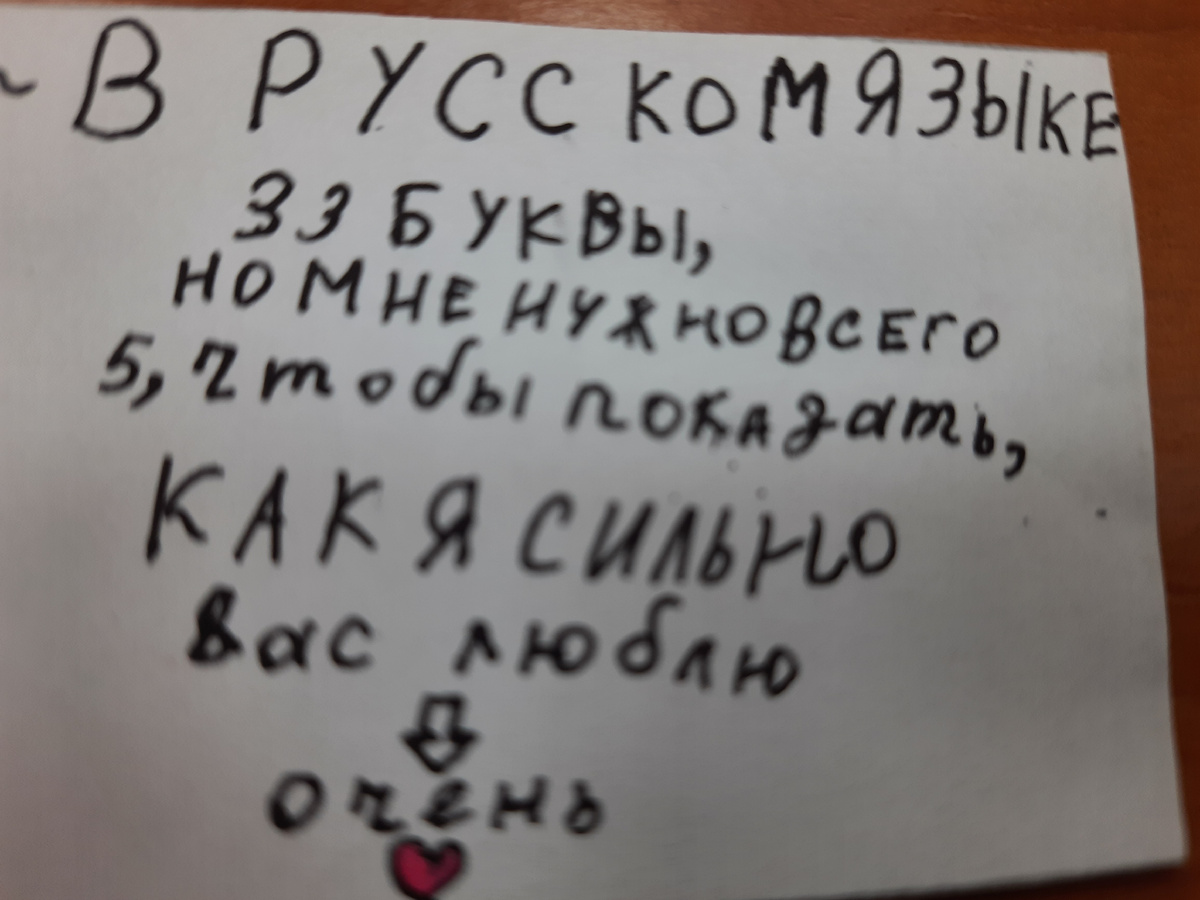 ~ В РУССКОМ ЯЗЫКЕ
33 БУКВЫ,
НО МНЕ НУЖНО ВСЕГО
5, чтобы показать,
КАК Я СИЛЬНО
вас люблю
очень